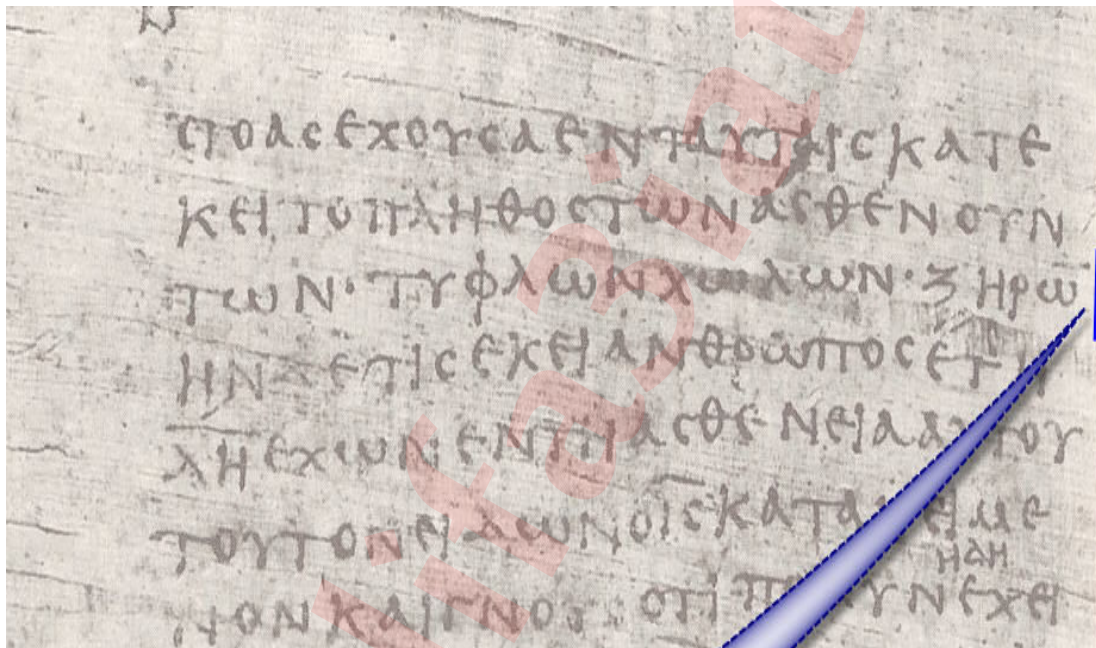 ϹΤΟΑϹΕΧΟΥϹΑΕΝΤΑΥΤΑΙϹΚΑΤΕ
ΚΕΙΤΟΠΛΗΘΟϹΤΩΝΑϹΘΕΝΟΥΝ
ΤΩΝ·ΤΥΦΛΩΝΧΩΛΩΝ·ΞΗΡΩ̅
ΗΝΔΕΤΙϹΕΚΕΙΑΝΘΡΩΠΟϹΕΤΗ
Λ̅Η̅ΕΧΩΝΕΝΤΗΑϹΘΕΝΕΙΑΑΥΤΟΥ
ΤΟΥΤΟΝΕΙΔΩΝΟ Ι̅Ϲ̅ΚΑΤΑΚΕΙΜΕ
ΗΔΗ
ΝΟΝΚΑΙΓΝΟΥϹ ΟΤΙΠΟΛΥΝΕΧΕΙ